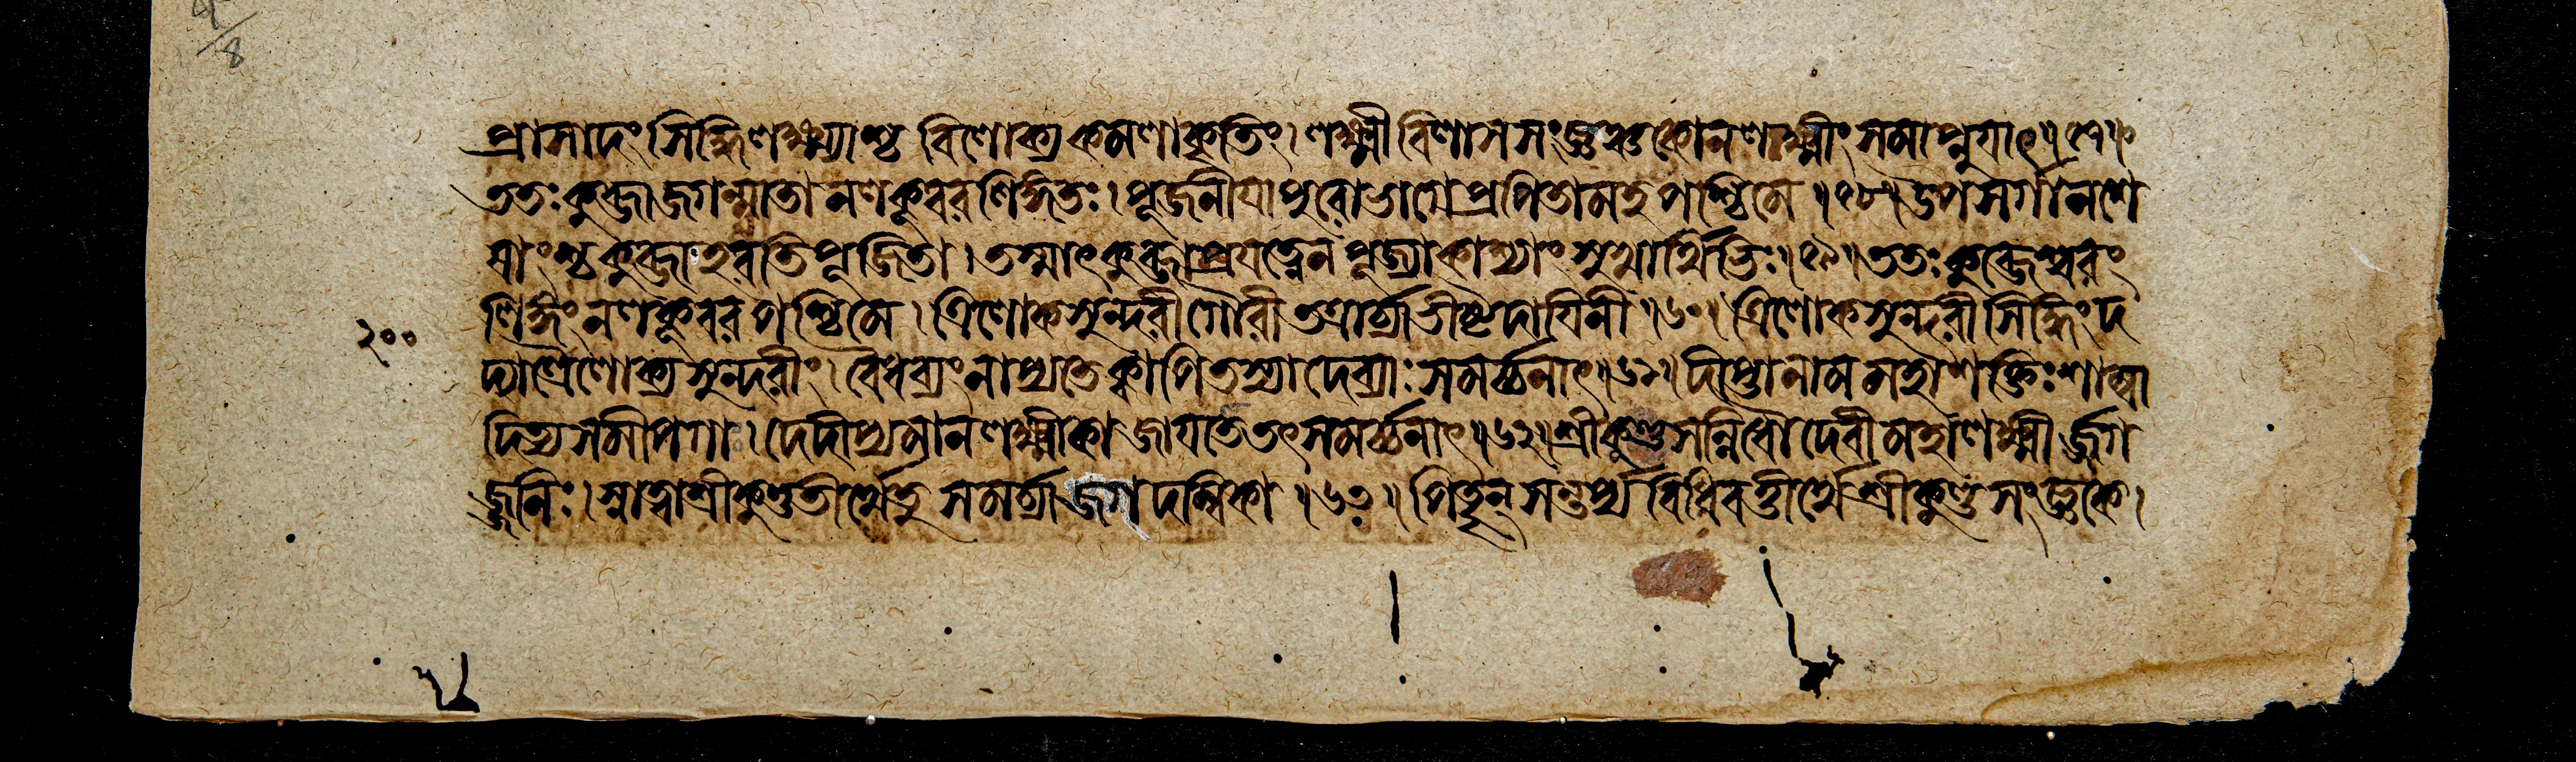 ৪/৪
প্রাসাদং সিদ্ধিলক্ষ্ম্যাশ্চ বিলোক্য কমলাকৃতিং। লক্ষ্মীবিলাসসংজ্ঞঞ্চ কোনলক্ষ্মীং সমাপ্নুয়াৎ॥৫৭॥
ততঃ কুব্জা জগন্মাতা নলকূবরলিঙ্গতঃ। পূজনীয়া পুরোভাগে প্রপিতামহপশ্চিমে॥৫৮॥উপসর্গানশে
ষাংশ্চ কুব্জা হরতি পূজিতা। তস্মাৎ কুব্জা প্রযত্নেন পূজ্যা কাশ্যাং সুখার্থিভিঃ॥৫৯॥ততঃ কুব্জেশ্বরং
লিঙ্গং নলকূবরপশ্চিমে। ত্রিলোকসুন্দরী গৌরী তত্রার্চ্যাভীষ্টদায়িনী॥৬০॥ত্রিলোকসুন্দরী সিদ্ধিং দ
দ্যাত্ত্রৈলোক্যসুন্দরীং। বৈধব্যং নাপ্যতে ক্বাপি তস্যা দেব্যাঃ সমর্চ্চনাৎ॥৬১॥দীপ্তা নাম মহাশক্তিঃ শাম্বা
দিত্যসমীপগা। দেদীপ্যমানলক্ষ্মীকা জায়তে তৎসমর্চ্চনাৎ॥৬২॥শ্রীকুণ্ডসন্নিধৌ দেবী মহালক্ষ্মীর্জ্জগ
জ্জনিঃ। স্নাত্বা শ্রীকুণ্ডতীর্থে তু সমর্চ্যা জগদম্বিকা॥৬৩॥পিতৄন্ সন্তর্প্য বিধিবত্তীর্থে শ্রীকুণ্ডসংজ্ঞকে।
২০০